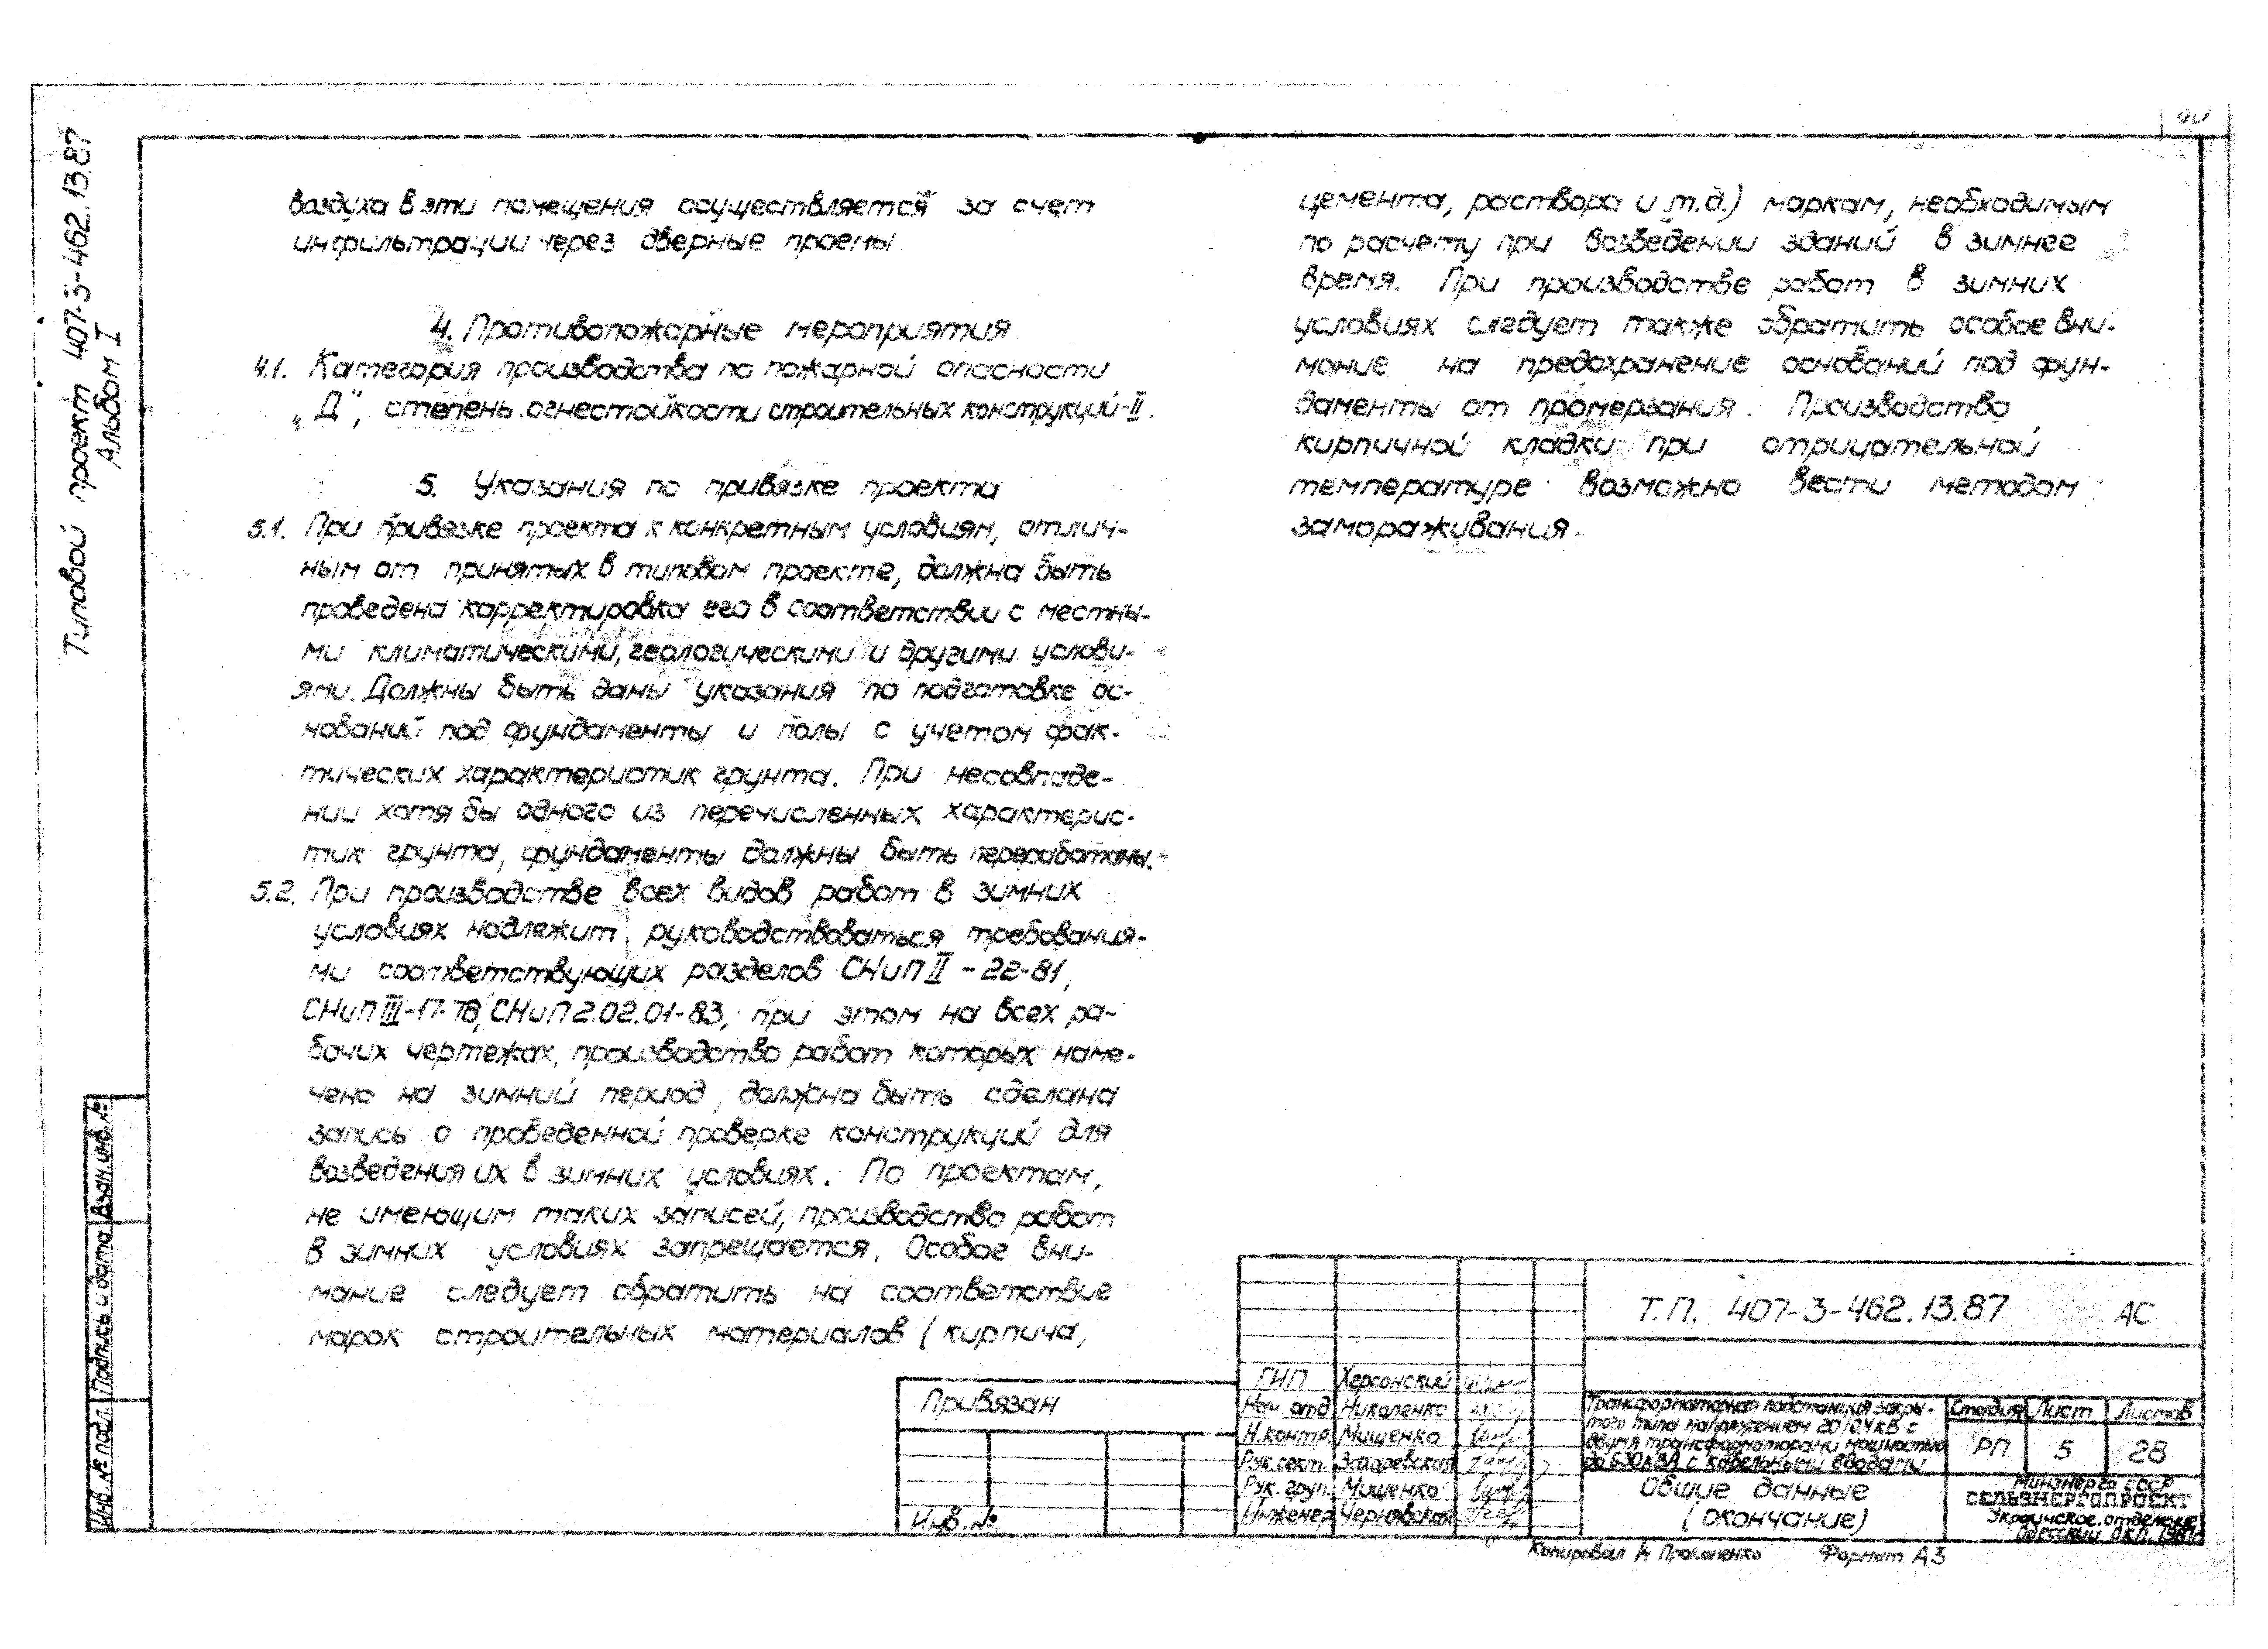 Типовой проект 407-3-462.13.87
Альбом I
воздуха в эти помещения осуществляется за счет
инфильтрации через дверные проемы
4. Противопожарные мероприятия
4.1. Категория производства по пожарной опасности
„Д“, степень огнестойкости строительных конструкций-II.
5. Указания по привязке проекта
5.1. При привязке проекта к конкретным условиям, отлич-
ным от принятых в типовом проекте, должна быть
проведена корректировка его в соответствии с местны-
ми климатическими, геологическими и другими услови-
ями. Должны быть даны указания по подготовке ос-
нований под фундаменты и полы с учетом фак-
тических характеристик грунта. При несовпаде-
нии хотя бы одного из перечисленных характерис-
тик грунта, фундаменты должны быть переработаны.
5.2. При производстве всех видов работ в зимних
условиях надлежит руководствоваться требования-
ми соответствующих разделов СНиП II - 22-81,
СНиП III-17-78, СНиП 2.02.01-83, при этом на всех ра-
бочих чертежах, производство работ которых наме-
чено на зимний период, должна быть сделана
запись о проведенной проверке конструкций для
возведения их в зимних условиях. По проектам,
не имеющим таких записей, производство работ
в зимних условиях запрещается. Особое вни-
мание следует обратить на соответствие
марок строительных материалов (кирпича,
цемента, раствора и т.д.) маркам, необходимым
по расчету при возведении зданий в зимнее
время. При производстве работ в зимних
условиях следует также обратить особое вни-
мание на предохранение оснований под фун-
даменты от промерзания. Производство
кирпичной кладки при отрицательной
температуре возможно вести методом
замораживания.
Взам. инв. №
Подпись и дата
Инв. № подл.
Привязан
Инв. №
ГИП Херсонский
Нач. отд Николенко
Н.контр. Мищенко
Рук.сект. Захаревская
Рук. груп. Мищенко
Инженер Черновская
Т.П. 407-3-462.13.87 АС
Трансформаторная подстанция закры-
того типа напряжением 20/0.4 кВ с
двумя трансформаторами мощностью
до 630 кВА с кабельными вводами
Стадия Лист Листов
РП 5 28
Общие данные
(окончание)
Минэнерго СССР
СЕЛЬЭНЕРГОПРОЕКТ
Украинское отделение
Одесский ОКП. 1987г
Копировал Прокопенко Формат А3